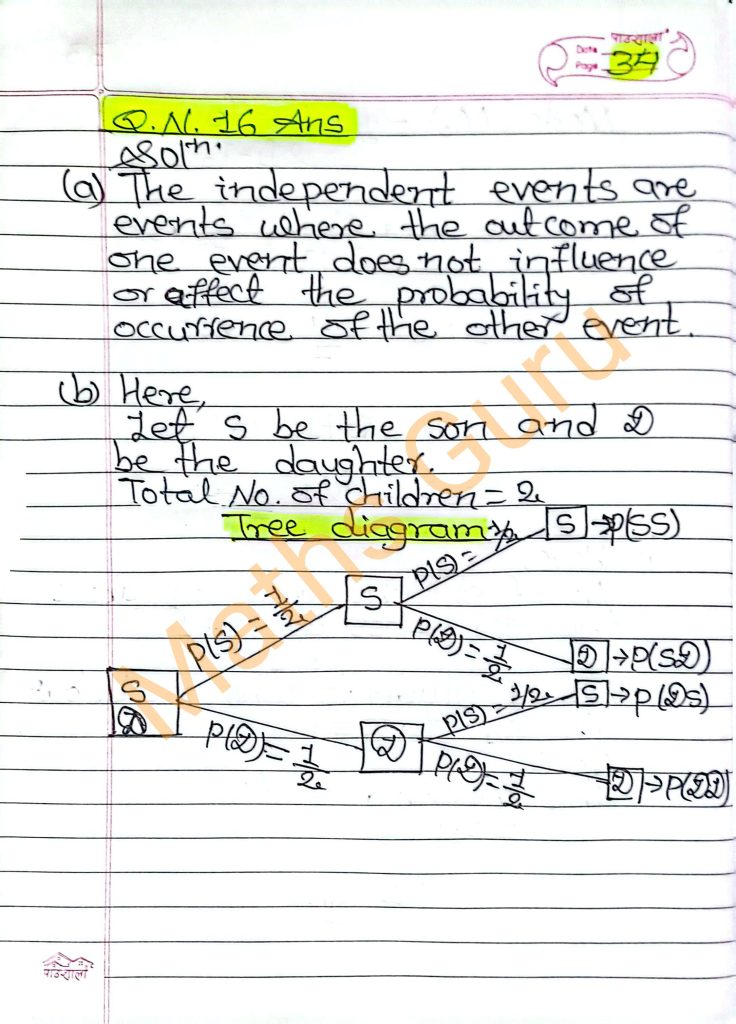 पाठशाला
Date
Page 34
Q.N. 16 Ans
Solⁿ.
(a) The independent events are
events where the outcome of
one event does not influence
or affect the probability of
occurrence of the other event.
(b) Here,
Let S be the son and D
be the daughter.
Total No. of children = 2
Tree diagram
P(S) = 1/2
S → P(SS)
S
P(S) = 1/2
P(D) = 1/2
D → P(SD)
S
D
P(S) = 1/2
S → P(DS)
P(D) = 1/2
D
P(D) = 1/2
D → P(DD)
Maths Guru
पाठशाला